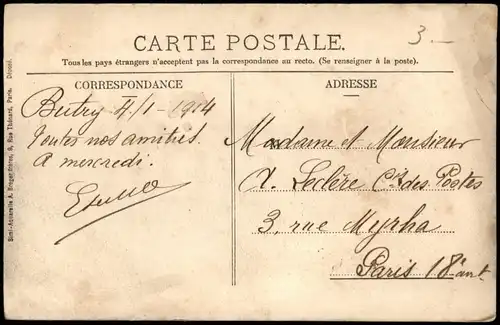 3 —
CARTE POSTALE.
Tous les pays étrangers n'acceptent pas la correspondance au recto. (Se renseigner à la poste).
CORRESPONDANCE
ADRESSE
Butry 4/1 - 1914
Toutes nos amitiés
A mercredi.
Madame et Monsieur
A. Leclère Cis des Postes
3, rue Myrha
Paris 18e arrt
Paris. Déposé.